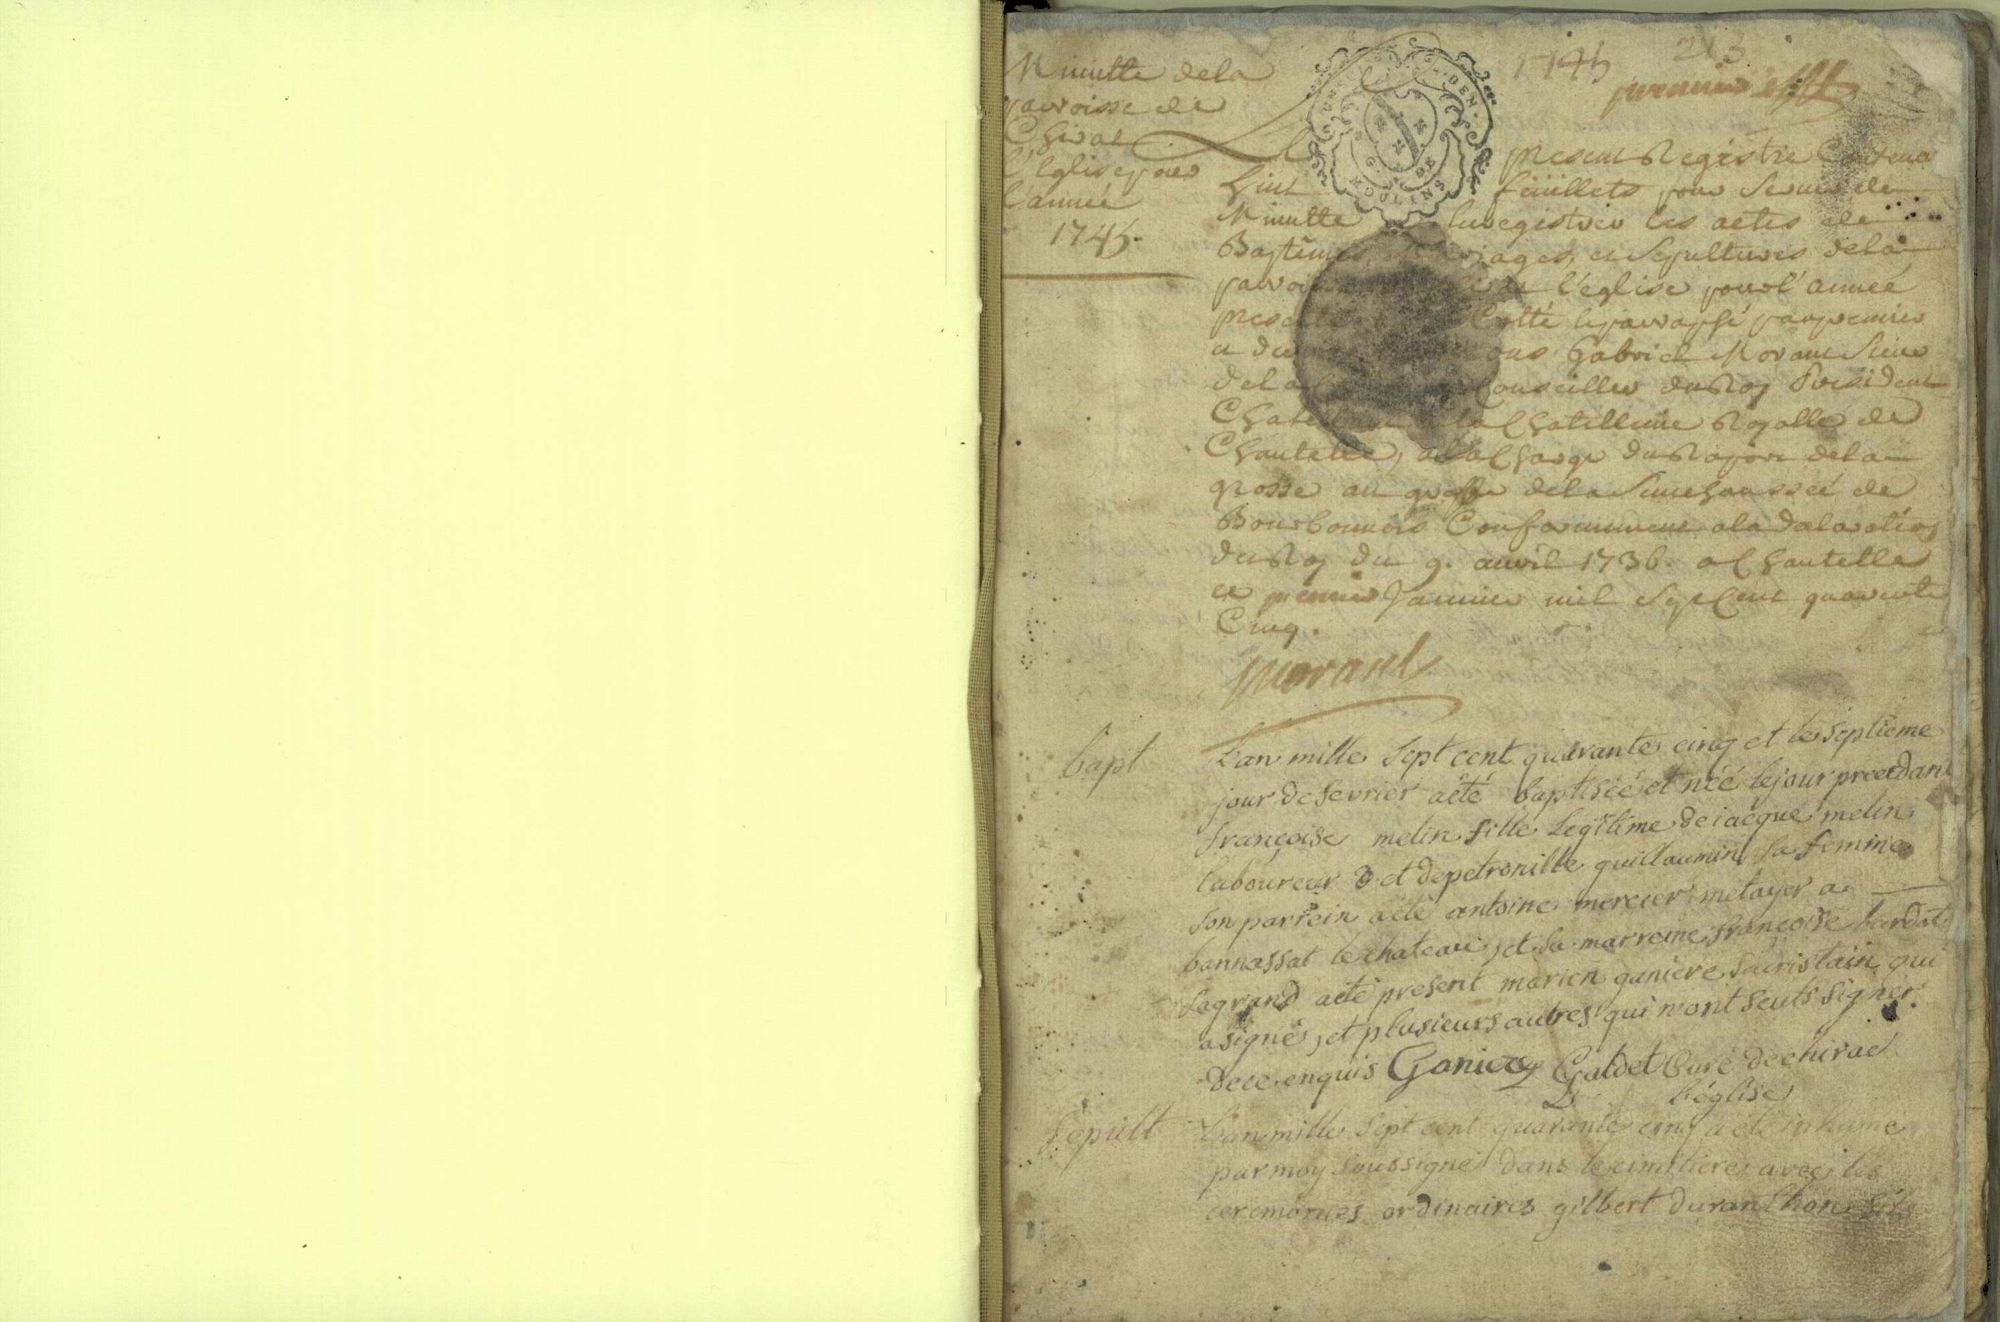 Minutte dela
parroisse de
Chirat
l'Eglise pour
l'année
1745.
1745
213
premier
UN DEN.
G. DE MOULINS
Le present Registre Contena
huit feüillets pour Servir de
Minutte Enregistrer les actes de
Baptêmes Mariages, et Sepultures dela
parroisse l'église pour l'année
presente Cotté et parraphé par premier
et der nous Gabriel Morant Sieur
dela Conseiller du Roy President
Chatelain la Chatellenie Royalle de
Chantelle, a la Charge du Raport dela
grosse au greffe dela Senechaussée de
Bourbonnois Conformement a la Declaration
du Roy du 9. avril 1736. a Chantelle
ce premier Janvier mil Sept Cent quarente
Cinq.
Morant
bapt
L'an mille sept cent quarante cinq et le septieme
jour de fevrier a été baptisée et née le jour precedant
françoise melin fille legitime de iacque melin
laboureur & et de petronille guillaumin sa femme
son parrein a été antoine mercier metayer a
bannassat le chateau, et sa marreine françoise bardot
lagrand a été present marien ganiere sacristain qui
a signé, et plusieurs autres qui n'ont seuts signer
de ce enquis Ganiere Galdet Curé de chirac
l'église
sepult
L'an mille sept cent quarante cinq a été inhumé
par moy soussigné dans le cimitiere avec les
ceremonies ordinaires gilbert duranthon fils